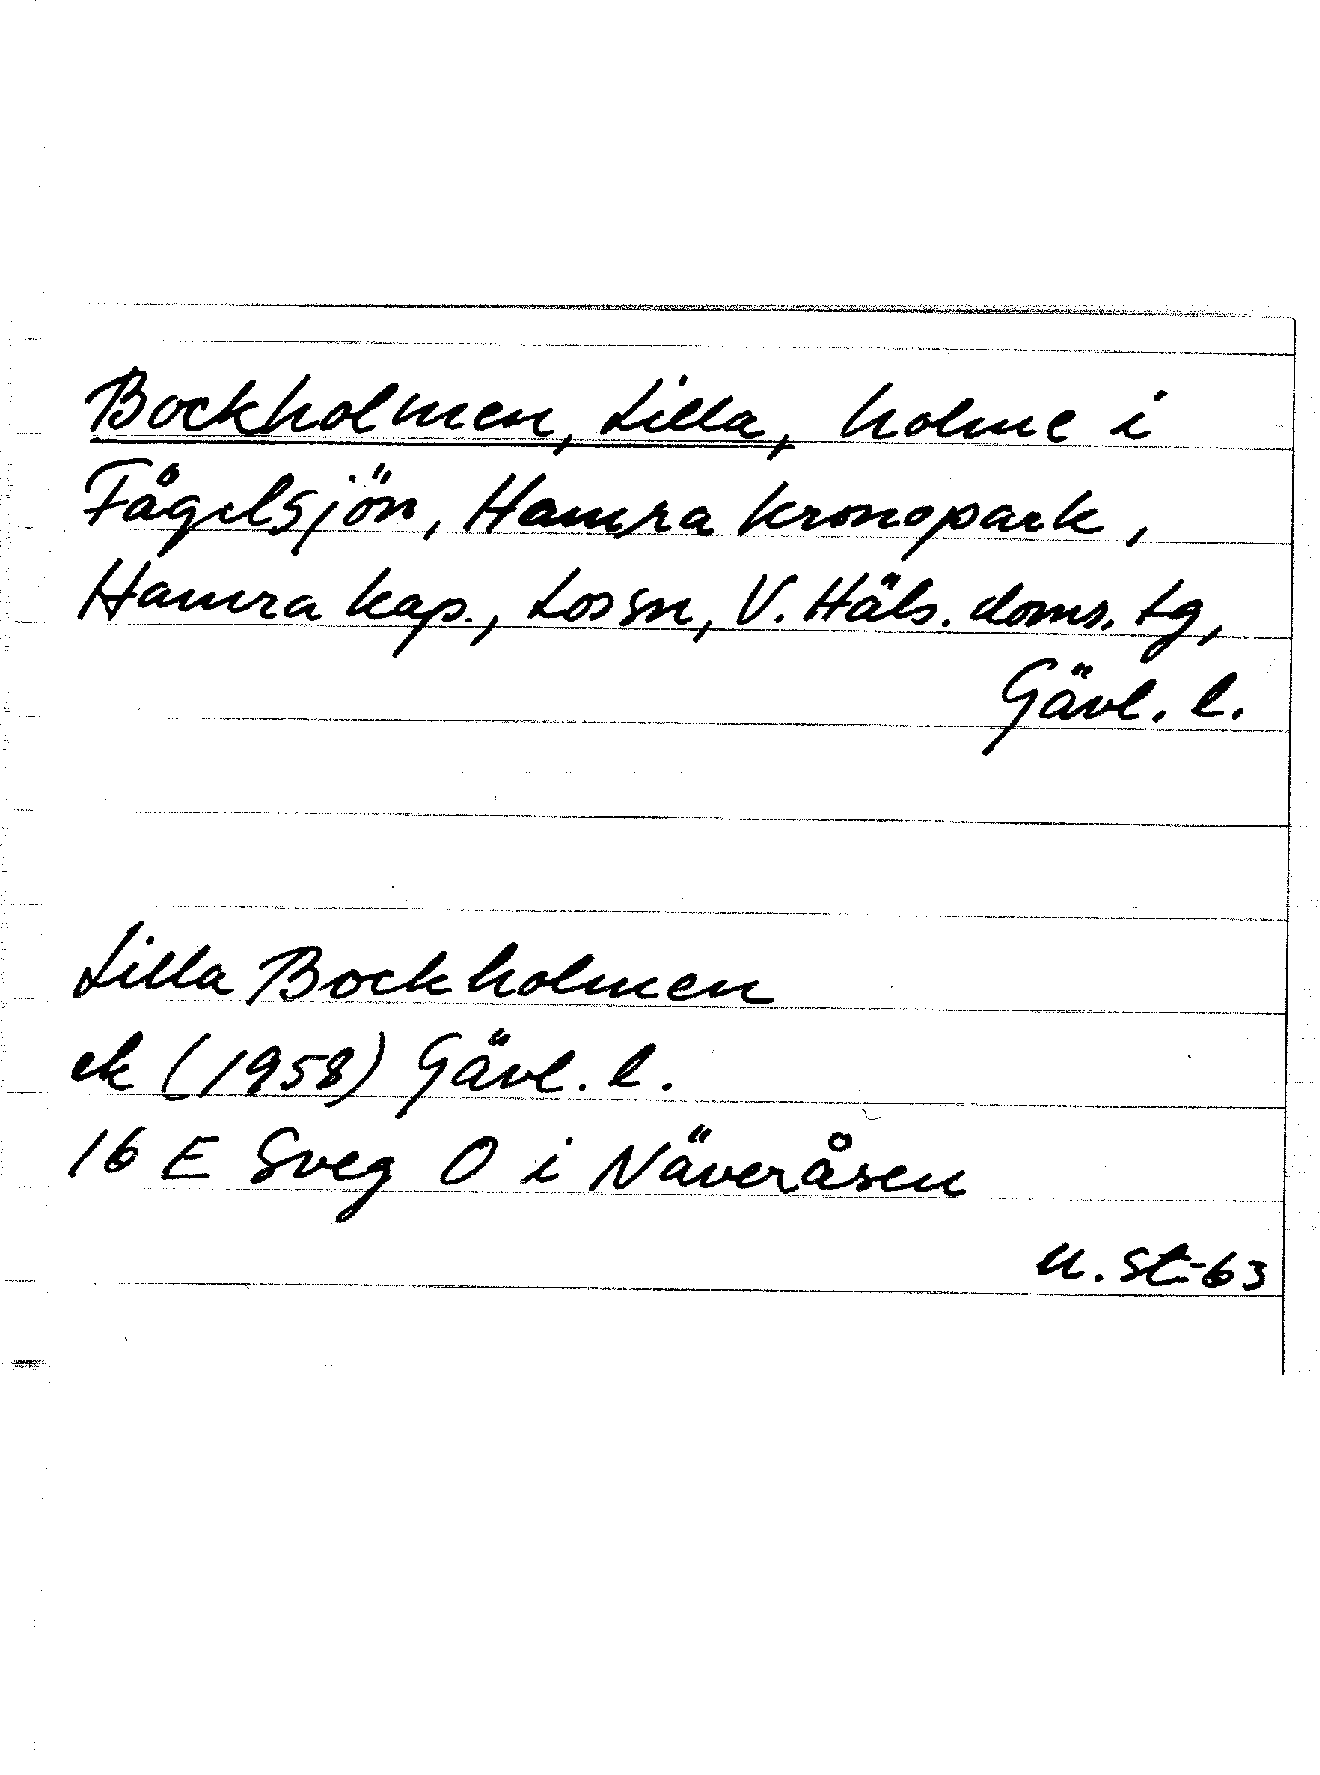 Bockholmen, Lilla, holme i
Fågelsjön, Hamra kronopark,
Hamra kap., Los sn, V. Häls. doms. tg,
Gävl. l.
Lilla Bockholmen
ek (1958) Gävl. l.
16 E Sveg O i Näveråsen
u. St-63